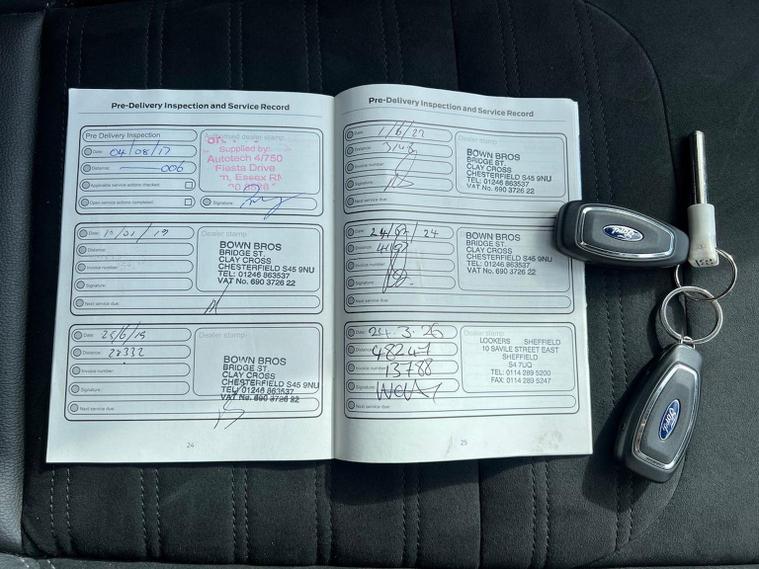 Pre-Delivery Inspection and Service Record
Pre Delivery Inspection
Authorised dealer stamp
Date: 04/08/17
Distance: 006
Applicable service actions checked:
Open service actions completed:
Supplied by:
Autotech 4/750
Fiesta Drive
Essex
Signature:
Date:
Distance:
Invoice number:
Signature:
Next service due:
Dealer stamp
BOWN BROS
BRIDGE ST.
CLAY CROSS
CHESTERFIELD S45 9NU
TEL: 01246 863537
VAT No. 690 3726 22
Date: 25/6/19
Distance: 28332
Invoice number:
Signature:
Next service due:
Dealer stamp
BOWN BROS
BRIDGE ST.
CLAY CROSS
CHESTERFIELD S45 9NU
TEL: 01246 863537
VAT No. 690 3726 22
24
Pre-Delivery Inspection and Service Record
Date:
Distance:
Invoice number:
Signature:
Next service due:
Dealer stamp
BOWN BROS
BRIDGE ST.
CLAY CROSS
CHESTERFIELD S45 9NU
TEL: 01246 863537
VAT No. 690 3726 22
Date:
Distance:
Invoice number:
Signature:
Next service due:
Dealer stamp
BOWN BROS
BRIDGE ST.
CLAY CROSS
CHESTERFIELD S45 9NU
TEL: 01246 863537
VAT No. 690 3726 22
Date: 24.3.26
Distance: 48247
Invoice number: 13788
Signature:
Next service due:
Dealer stamp
LOOKERS SHEFFIELD
10 SAVILE STREET EAST
SHEFFIELD
S4 7UQ
TEL: 0114 289 5200
FAX: 0114 289 5247
25
Ford
Ford